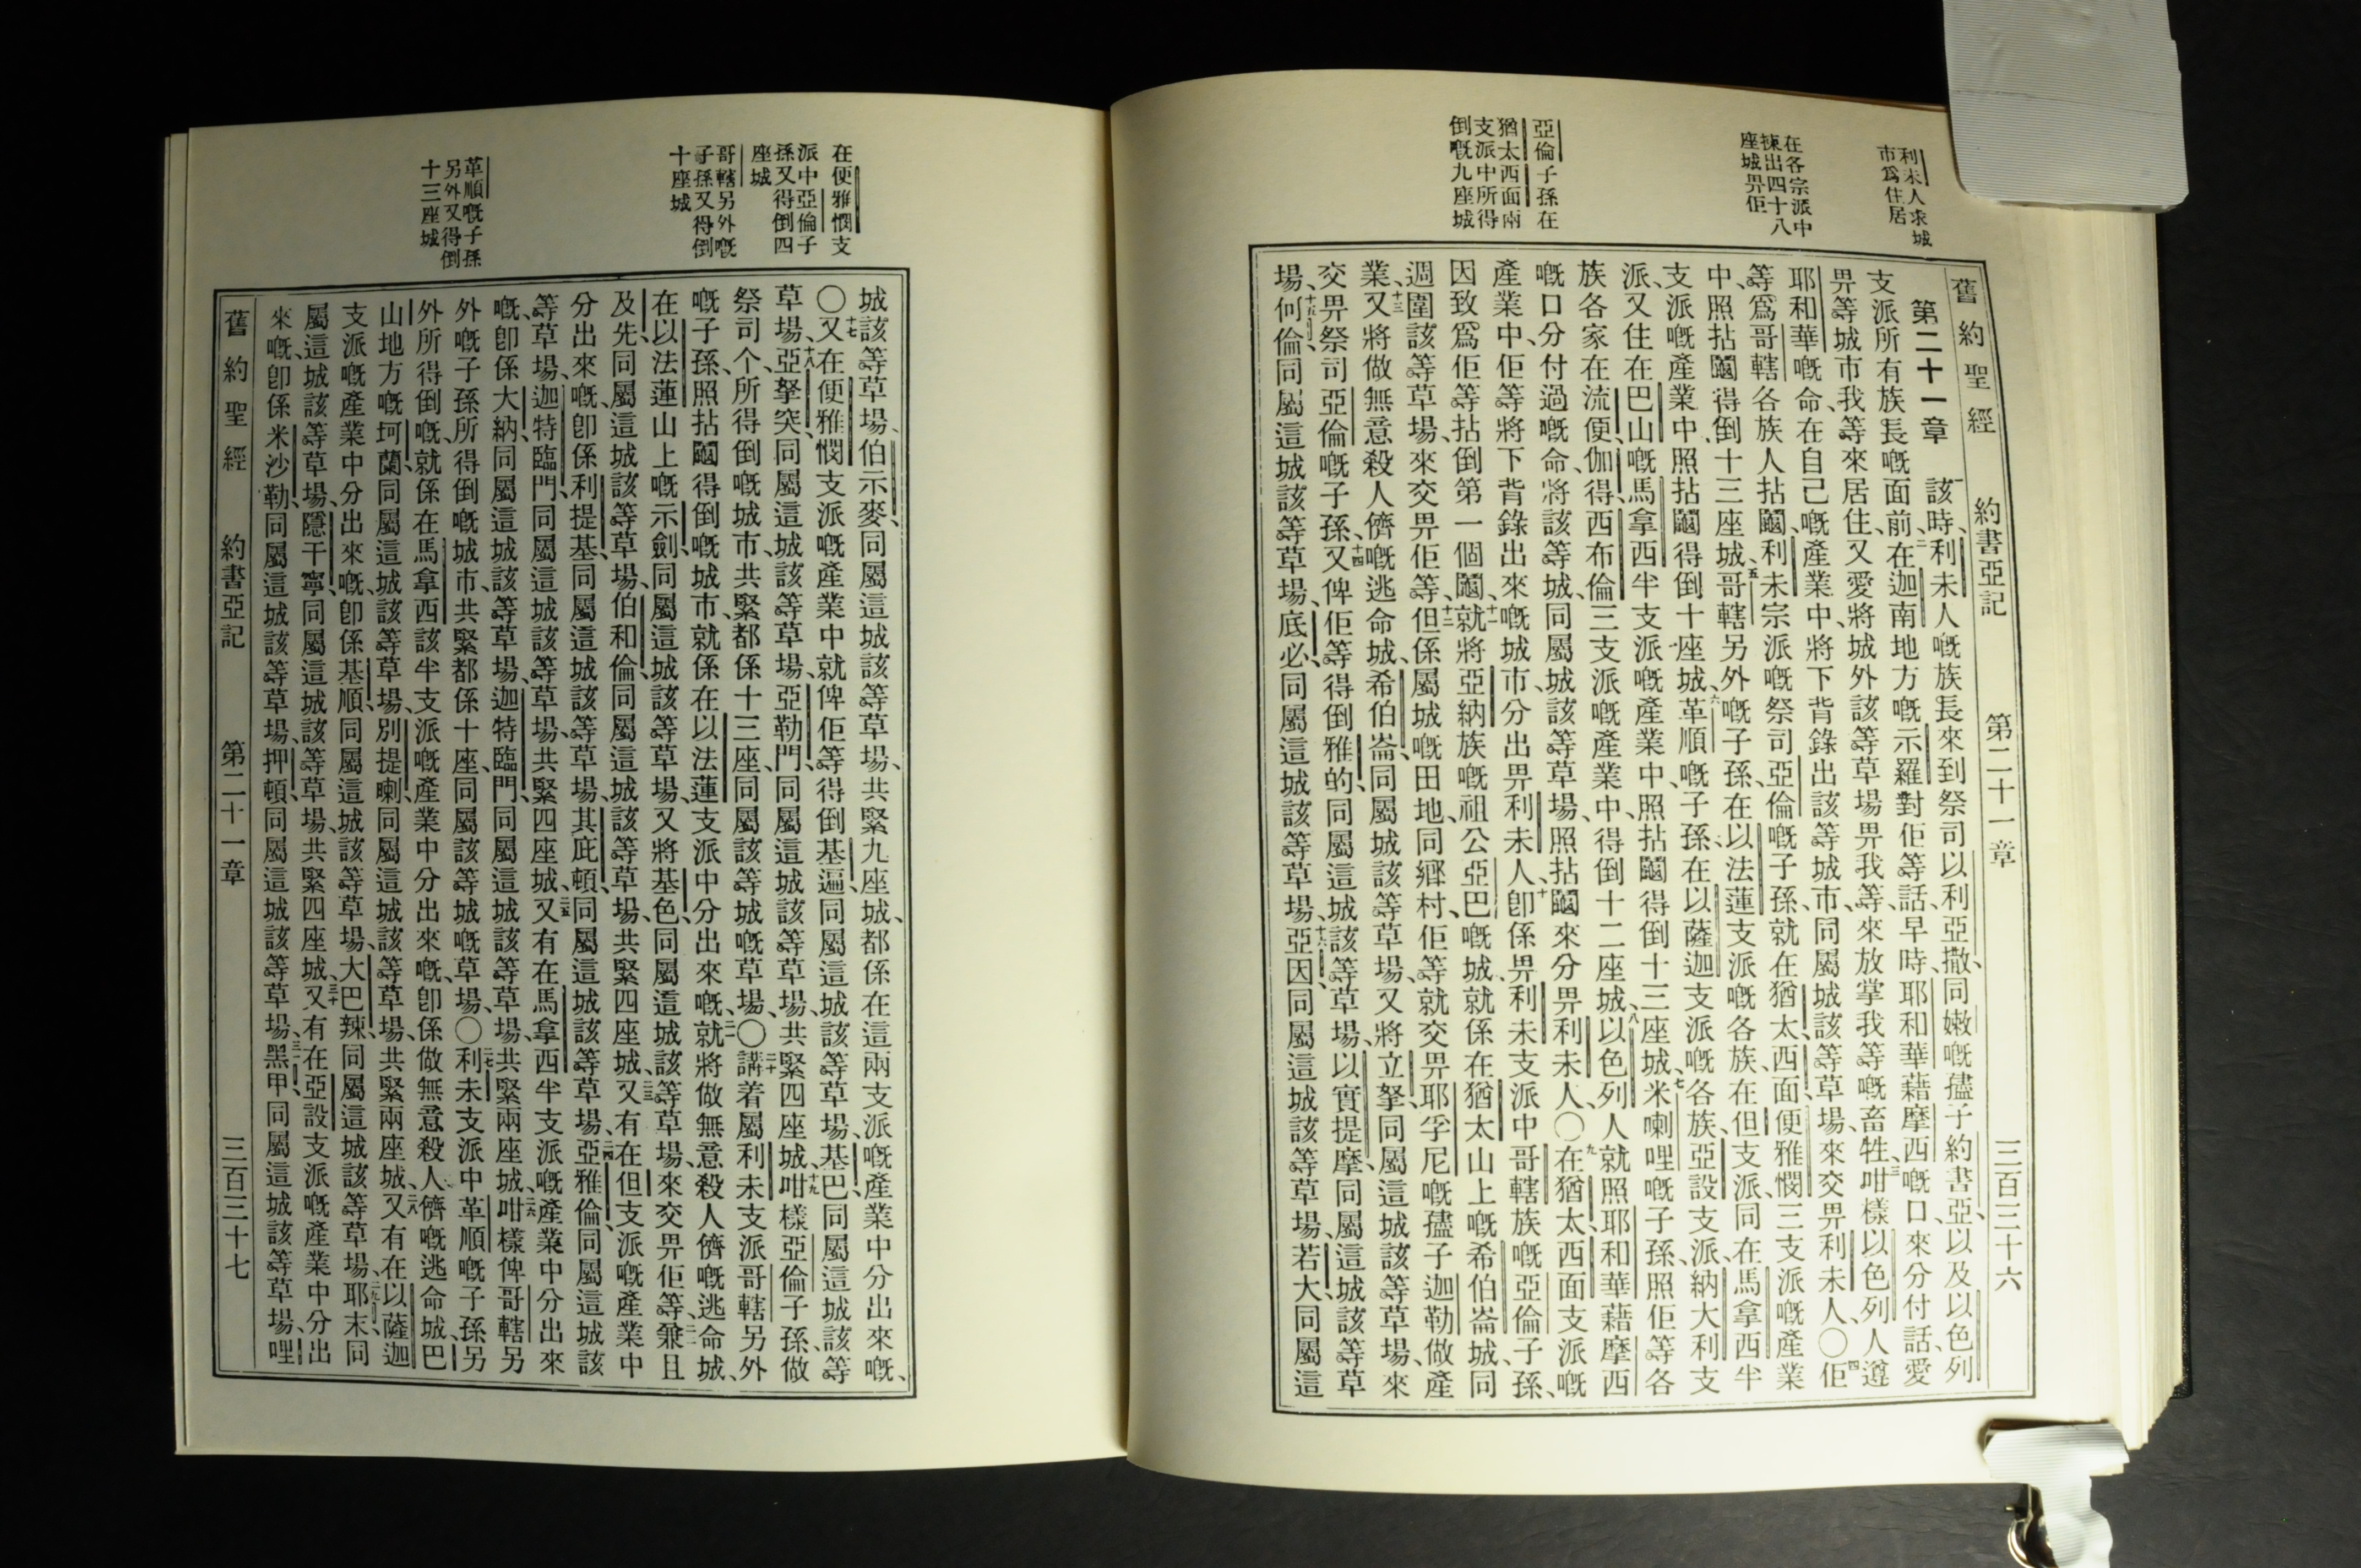 利未人求城
市爲住居
在各宗派中
揀出四十八
座城畀佢
亞倫子孫在
猶太西面兩
支派中所得
倒嘅九座城
舊約聖經 約書亞記 第二十一章 三百三十六
第二十一章 一該時、利未人嘅族長來到祭司以利亞撒、同嫩嘅孻子約書亞、以及以色列
支派所有族長嘅面前、二在迦南地方嘅示羅對佢等話、早時、耶和華藉摩西嘅口、來分付話、愛
畀等城市、我等來居住、又愛將城外該等草場畀我等、來放掌我等嘅畜牲、三咁樣以色列人遵
耶和華嘅命、在自己嘅產業中、將下背錄出該等城市、同屬城該等草場、來交畀利未人、〇四佢
等爲哥轄各族人拈鬮、利未宗派嘅祭司亞倫嘅子孫、就在猶太、西面、便雅憫、三支派嘅產業
中、照拈鬮得倒十三座城、五哥轄另外嘅子孫、在以法蓮支派嘅各族、在但支派、同在馬拿西半
支派嘅產業中、照拈鬮得倒十座城、六革順嘅子孫、在以薩迦支派嘅各族、亞設支派、納大利支
派、又住在巴山嘅馬拿西半支派嘅產業中、照拈鬮得倒十三座城、七米喇哩嘅子孫、照佢等各
族各家、在流便、伽得、西布倫三支派嘅產業中、得倒十二座城、八以色列人、就照耶和華藉摩西
嘅口分付過嘅命、將該等城、同屬城該等草場、照拈鬮來分畀利未人、〇九在猶太、西面支派嘅
產業中、佢等將下背錄出來嘅城市、分出畀利未人、十卽係畀利未支派中、哥轄族嘅亞倫子孫、
因致爲佢等拈倒第一個鬮、十一就將亞納族嘅祖公亞巴嘅城、就係在猶太山上嘅希伯崙城、同
週圍該等草場、來交畀佢等、十二但係屬城嘅田地、同鄉村、佢等就交畀耶孚尼嘅孻子迦勒做產
業、十三又將做無意殺人儕嘅逃命城、希伯崙、同屬城該等草場、又將立拏、同屬這城該等草場、來
交畀祭司亞倫嘅子孫、十四又俾佢等得倒雅的、同屬這城該等草場、以實提摩、同屬這城該等草
場、十五何倫、同屬這城該等草場、底必、同屬這城該等草場、十六亞因、同屬這城該等草場、若大、同屬這
在便雅憫支
派中亞倫子
孫又得倒四
座城
哥轄另外嘅
子孫又得倒
十座城
革順嘅子孫
另外又得倒
十三座城
城該等草場、伯示麥、同屬這城該等草場、共緊九座城、都係在這兩支派嘅產業中分出來嘅、
〇十七又在便雅憫支派嘅產業中、就俾佢等得倒基遍、同屬這城該等草場、基巴、同屬這城該等
草場、十八亞拏突、同屬這城該等草場、亞勒門、同屬這城該等草場、共緊四座城、十九咁樣亞倫子孫、做
祭司个、所得倒嘅城市、共緊都係十三座、同屬該等城嘅草場、〇二十講着屬利未支派哥轄另外
嘅子孫、照拈鬮得倒嘅城市、就係在以法蓮支派中分出來嘅、二一就將做無意殺人儕嘅逃命城、
在以法蓮山上嘅示劍、同屬這城該等草場、又將基色、同屬這城該等草場、來交畀佢等、二二兼且
及先、同屬這城該等草場、伯和倫、同屬這城該等草場、共緊四座城、二三又有在但支派嘅產業中
分出來嘅、卽係利提基、同屬這城該等草場、其庇頓、同屬這城該等草場、二四亞雅倫、同屬這城該
等草場、迦特臨門、同屬這城該等草場、共緊四座城、二五又有在馬拿西半支派嘅產業中分出來
嘅、卽係大納、同屬這城該等草場、迦特臨門、同屬這城該等草場、共緊兩座城、二六咁樣俾哥轄另
外嘅子孫所得倒嘅城市、共緊都係十座、同屬該等城嘅草場、〇二七利未支派中革順嘅子孫、另
外所得倒嘅、就係在馬拿西該半支派嘅產業中分出來嘅、卽係做無意殺人儕嘅逃命城、巴
山地方嘅坷蘭、同屬這城該等草場、別提喇、同屬這城該等草場、共緊兩座城、二八又有在以薩迦
支派嘅產業中分出來嘅、卽係基順、同屬這城該等草場、大巴辣、同屬這城該等草場、二九耶末、同
屬這城該等草場、隱干寧、同屬這城該等草場、共緊四座城、三十又有在亞設支派嘅產業中分出
來嘅、卽係米沙勒、同屬這城該等草場、押頓、同屬這城該等草場、三一黑甲、同屬這城該等草場、哩
舊約聖經 約書亞記 第二十一章 三百三十七